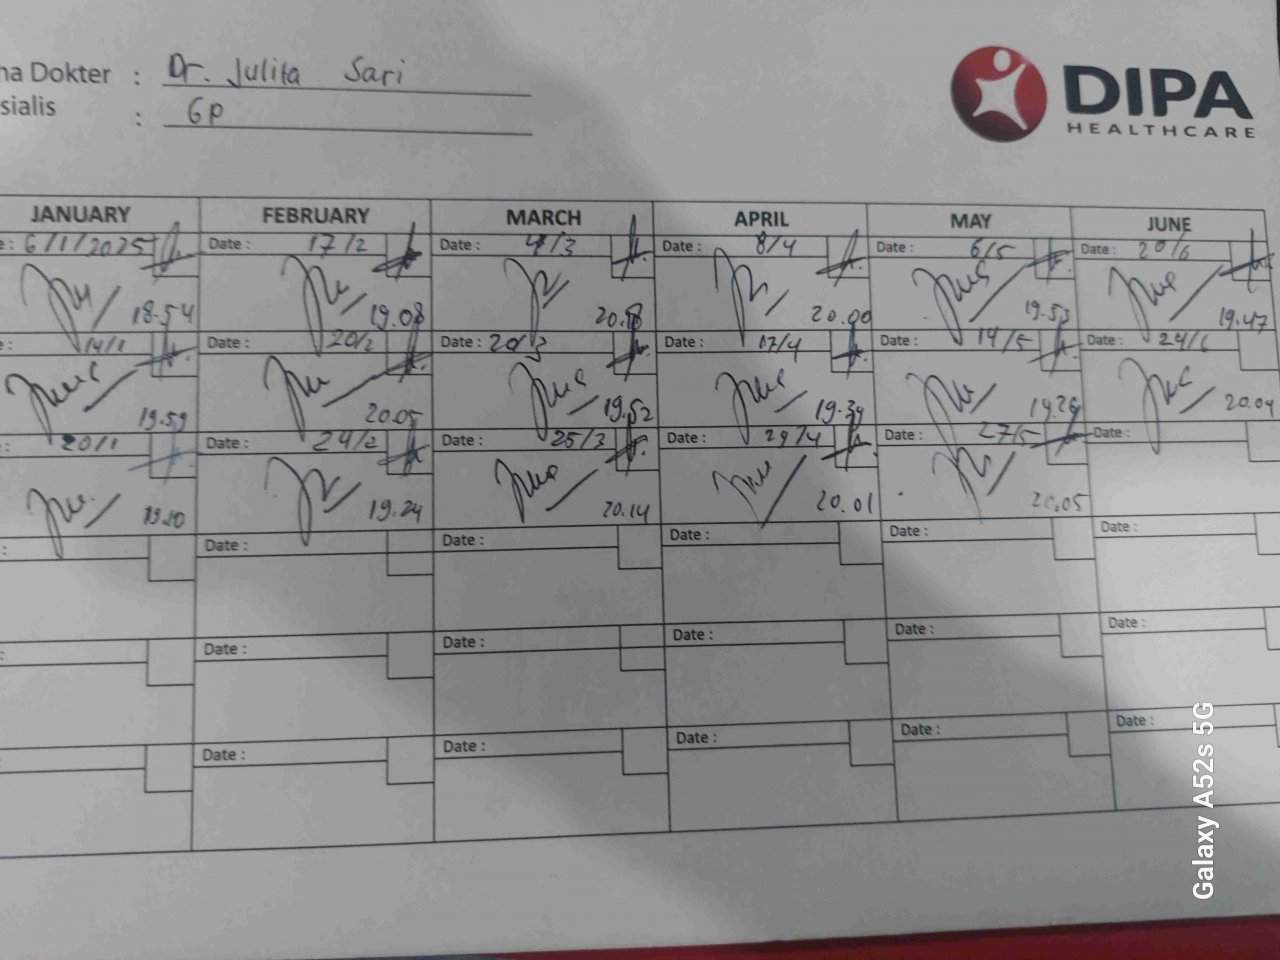 na Dokter : Dr. Julita Sari
sialis : GP
DIPA
HEALTHCARE
JANUARY FEBRUARY MARCH APRIL MAY JUNE
e : 6/1/2025 Date : 17/2 Date : 4/3 Date : 8/4 Date : 6/5 Date : 20/6
18.54 19.08 20.18 20.00 19.53 19.47
e : 14/1 Date : 20/2 Date : 20/3 Date : 17/4 Date : 14/5 Date : 24/6
19.59 20.05 19.52 19.34 19.26 20.04
: 20/1 Date : 24/2 Date : 25/3 Date : 29/4 Date : 27/5 Date :
19.10 19.24 20.14 20.01 20.05
: Date : Date : Date : Date : Date :
: Date : Date : Date : Date : Date :
Date : Date : Date : Date : Date :
Galaxy A52s 5G